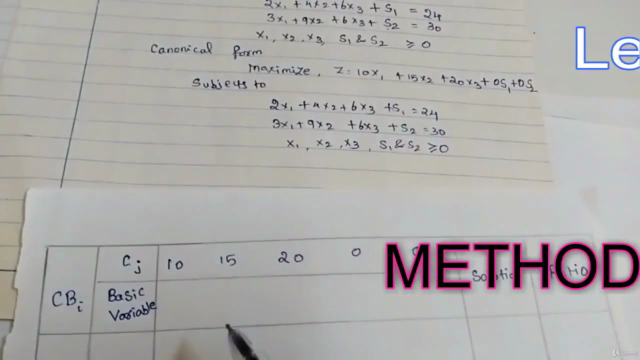 2x₁ + 4x₂ + 6x₃ + S₁ = 24
3x₁ + 9x₂ + 6x₃ + S₂ = 30
x₁, x₂, x₃, S₁ & S₂ ≥ 0
Le
Canonical form
maximize, Z = 10x₁ + 15x₂ + 20x₃ + 0S₁ + 0S₂
Subjects to
2x₁ + 4x₂ + 6x₃ + S₁ = 24
3x₁ + 9x₂ + 6x₃ + S₂ = 30
x₁, x₂, x₃, S₁ & S₂ ≥ 0
Cj 10 15 20 0
METHOD
CBi Basic Variable